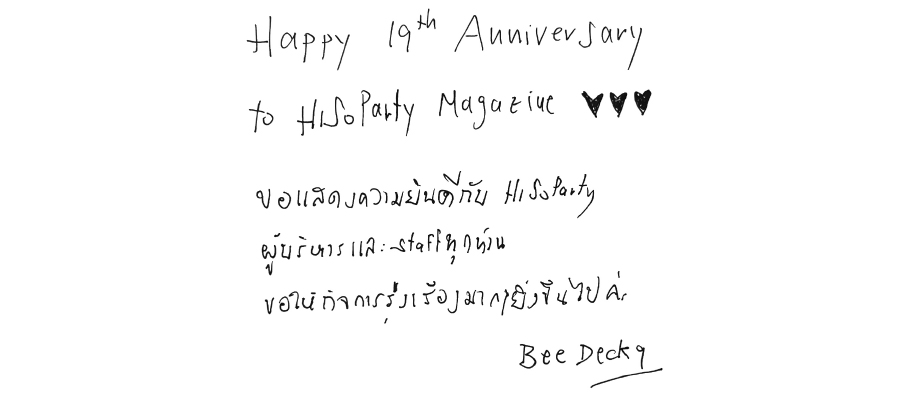 Happy 19th Anniversary
to HiSoParty Magazine ♥♥♥
ขอแสดงความยินดีกับ HiSoParty
ผู้บริหารและstaffทุกท่าน
ขอให้กิจการรุ่งเรืองมากยิ่งขึ้นไปค่ะ
Bee Decka